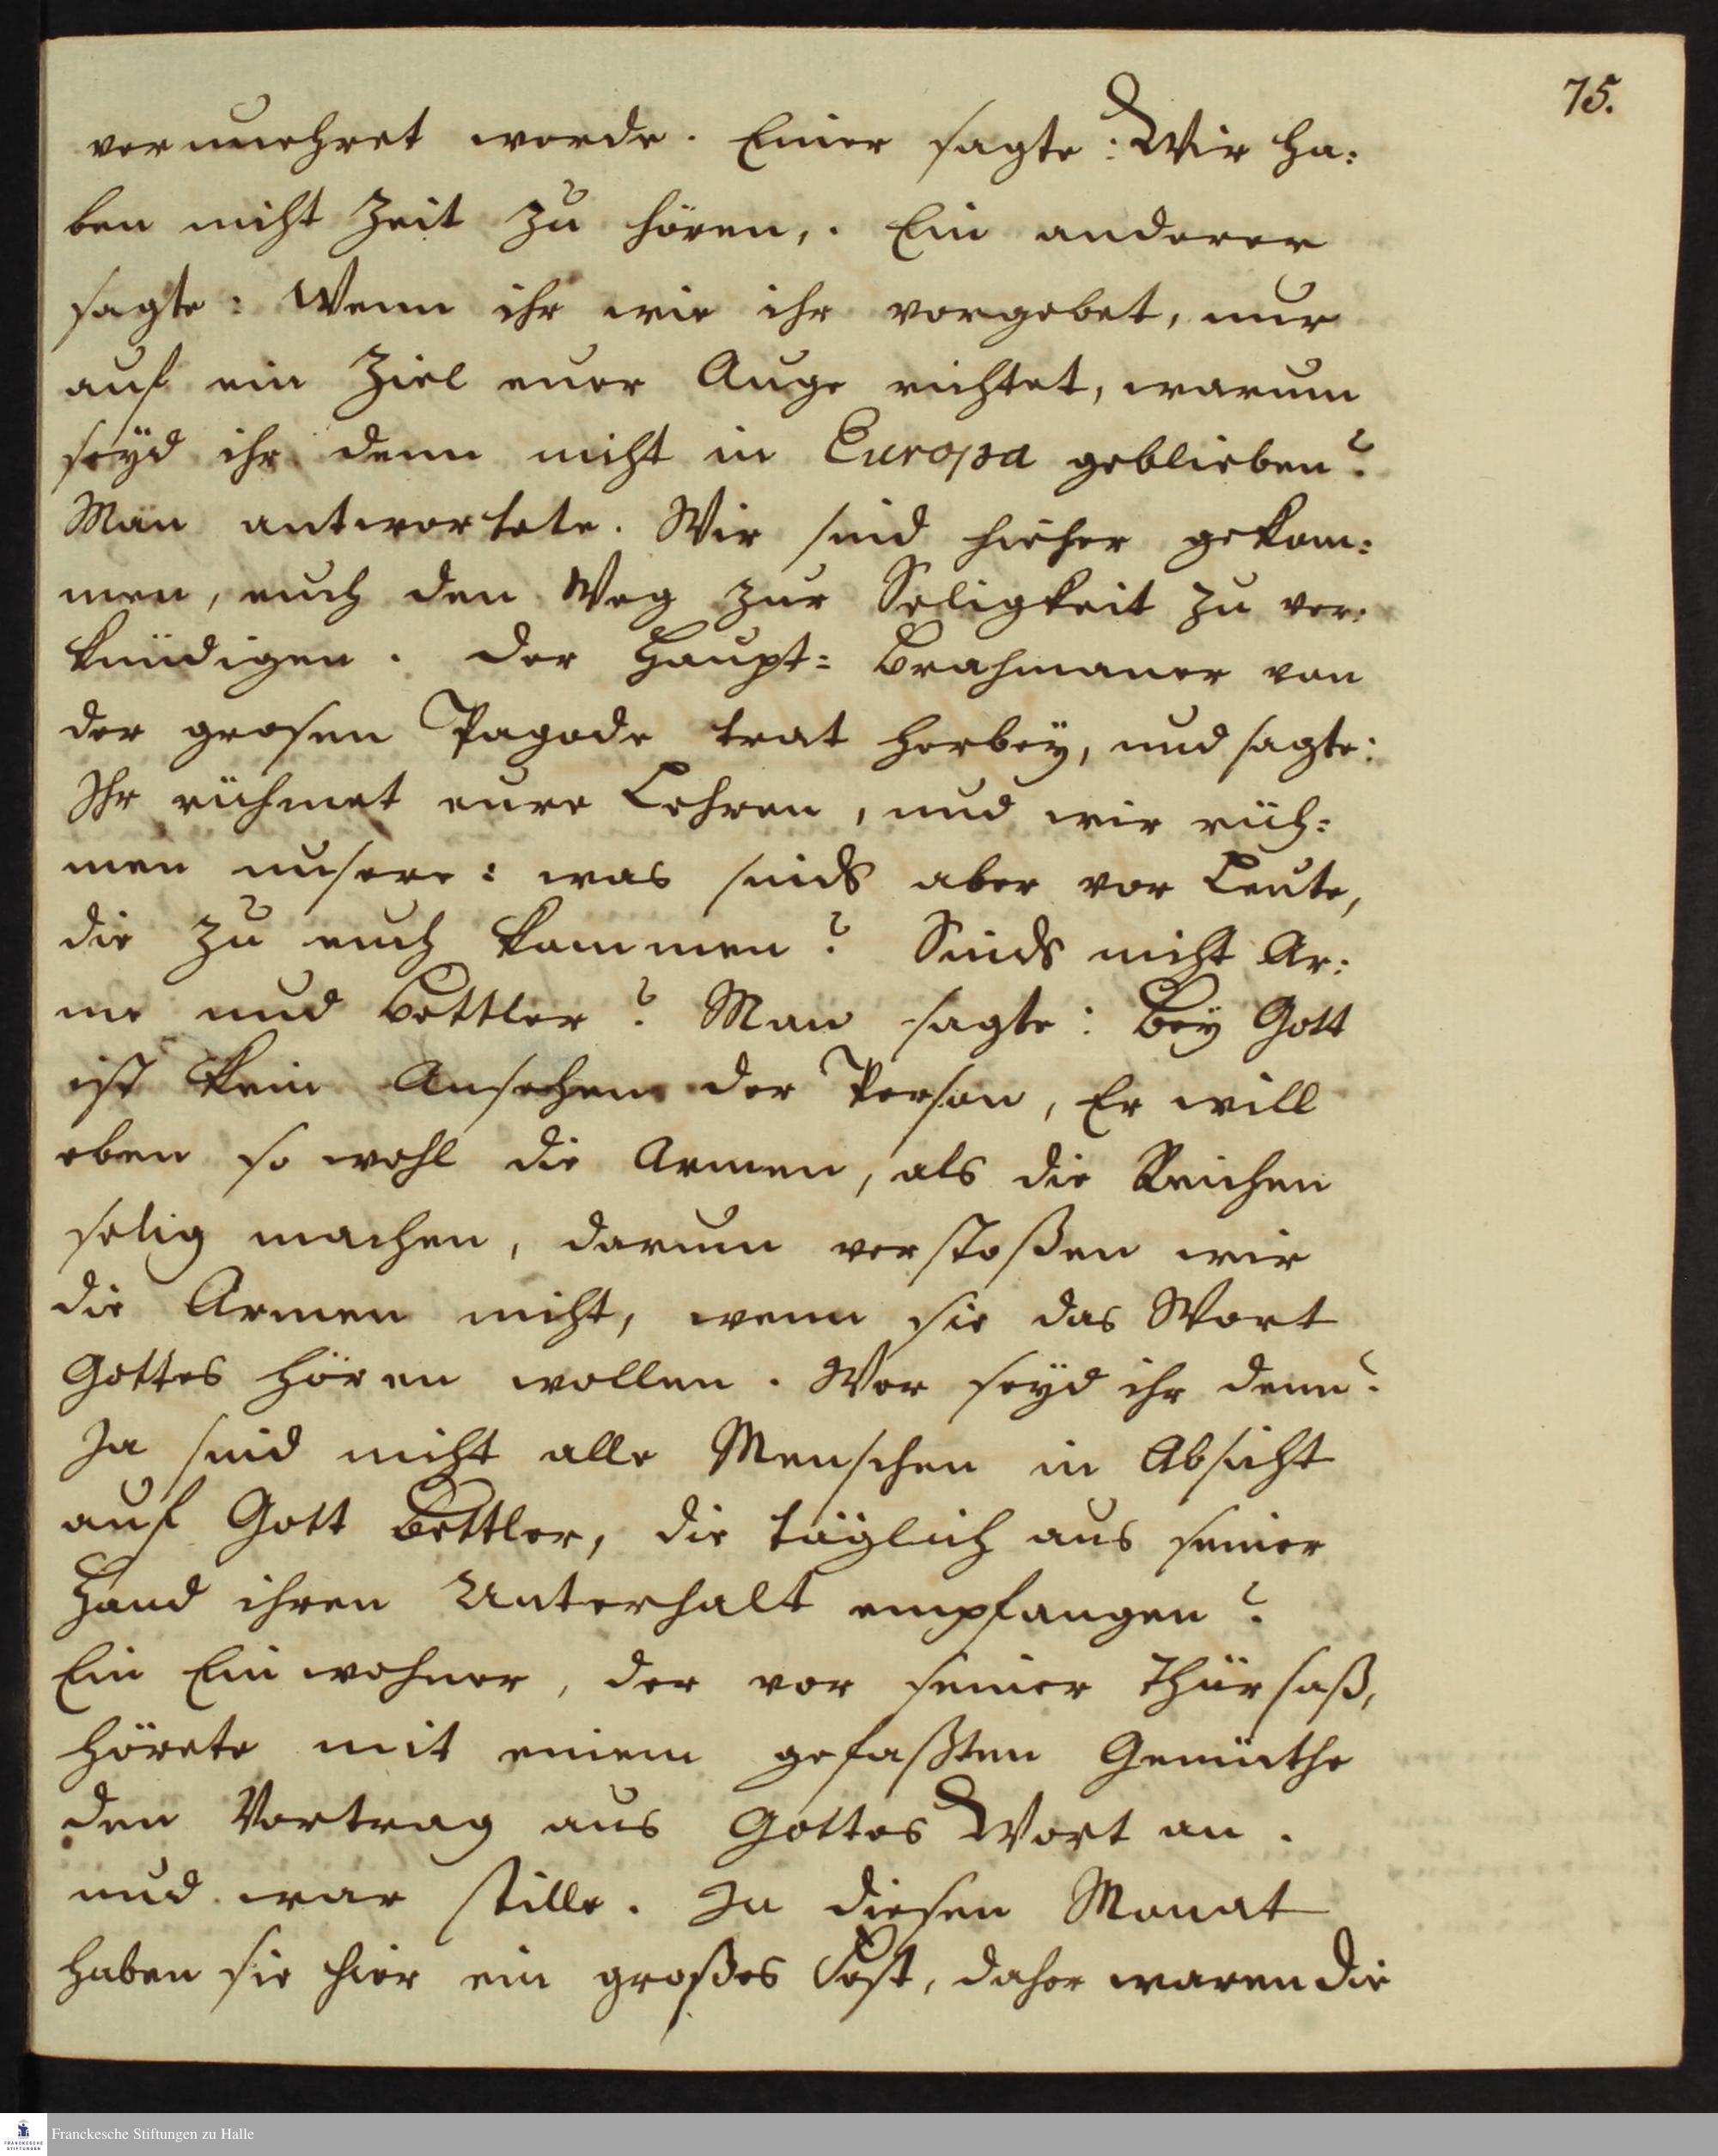 75.
verunehret werde. Einer sagte: Wir ha:
ben nicht Zeit zu hören,. Ein anderer
sagte: Wenn ihr wie ihr vorgebet, nur
auf ein Ziel euer Auge richtet, warum
seÿd ihr denn nicht in Europa geblieben?
Man antwortete. Wir sind hieher gekom:
men, euch den Weg zur Seligkeit zu ver:
kündigen. Der Haupt: Brahmaner von
der grosen Pagode trat herbeÿ, und sagte:
Ihr rühmet eure Lehren, und wir rüh:
men unsere: was sinds aber vor Leute,
die zu euch kommen? Sinds nicht Ar:
me und Bettler? Man sagte: Beÿ Gott
ist kein Ansehen der Person, Er will
eben so wohl die Armen, als die Reichen
selig machen, darum verstoßen wir
die Armen nicht, wenn sie das Wort
Gottes hören wollen. Wer seÿd ihr denn?
Ja sind nicht alle Menschen in Absicht
auf Gott Bettler, die täglich aus seiner
Hand ihren Unterhalt empfangen?
Ein Einwohner, der vor seiner Thür saß,
hörete mit einem gefaßten Gemüthe
den Vortrag aus Gottes Wort an.
und war stille. In diesen Monat
haben sie hier ein großes Fest, daher waren die
Franckesche Stiftungen zu Halle
FRANCKESCHE
STIFTUNGEN